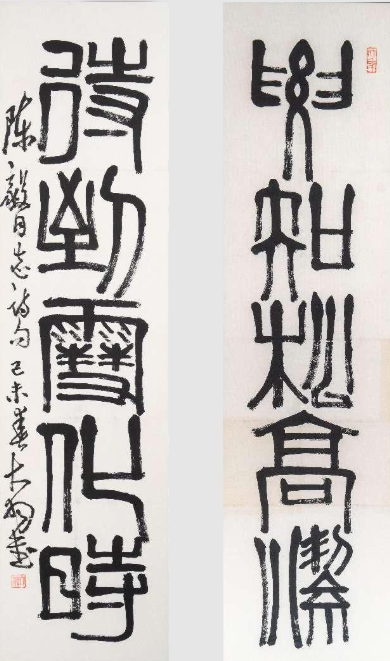 要知松高潔
待到雪化時
陈毅同志诗句己未春大羽書